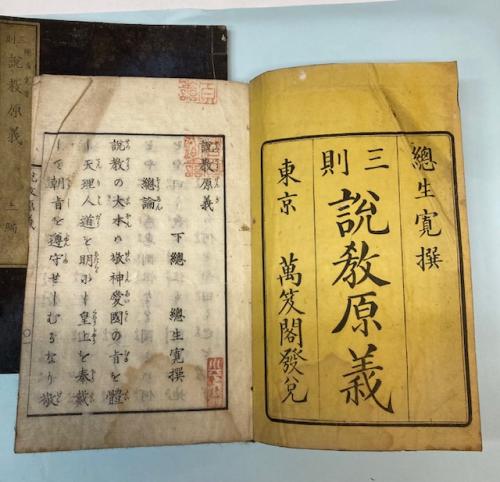 總生寛撰
三則
說教原義
東京 萬笈閣發兌
說教原義
下總 總生寛撰
總論
說教の大本ハ敬神愛國の旨を體
し天理人道を明にし皇上を奉戴
して朝旨を遵守せしむるなり故
說教原義
三則
說教原義
上